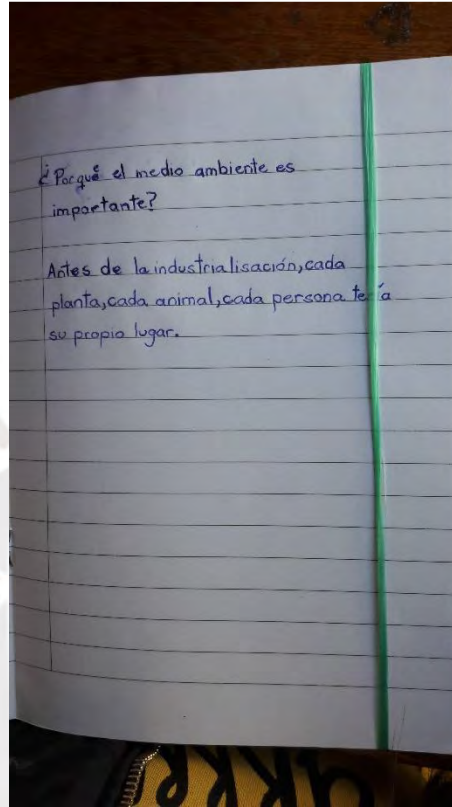 ¿Porqué el medio ambiente es
impoetante?
Antes de la industrialisación, cada
planta, cada animal, cada persona
su propio lugar.